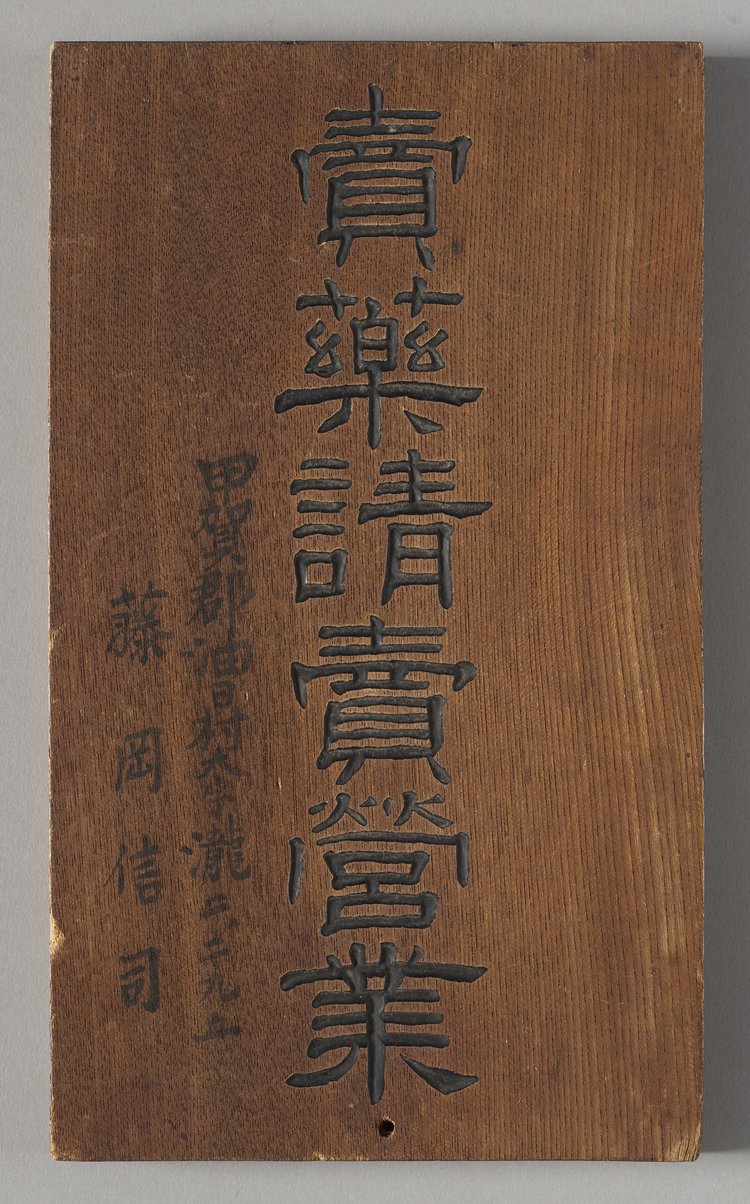 賣藥請賣營業
甲賀郡油日村大字瀧二、二九五
藤岡信司